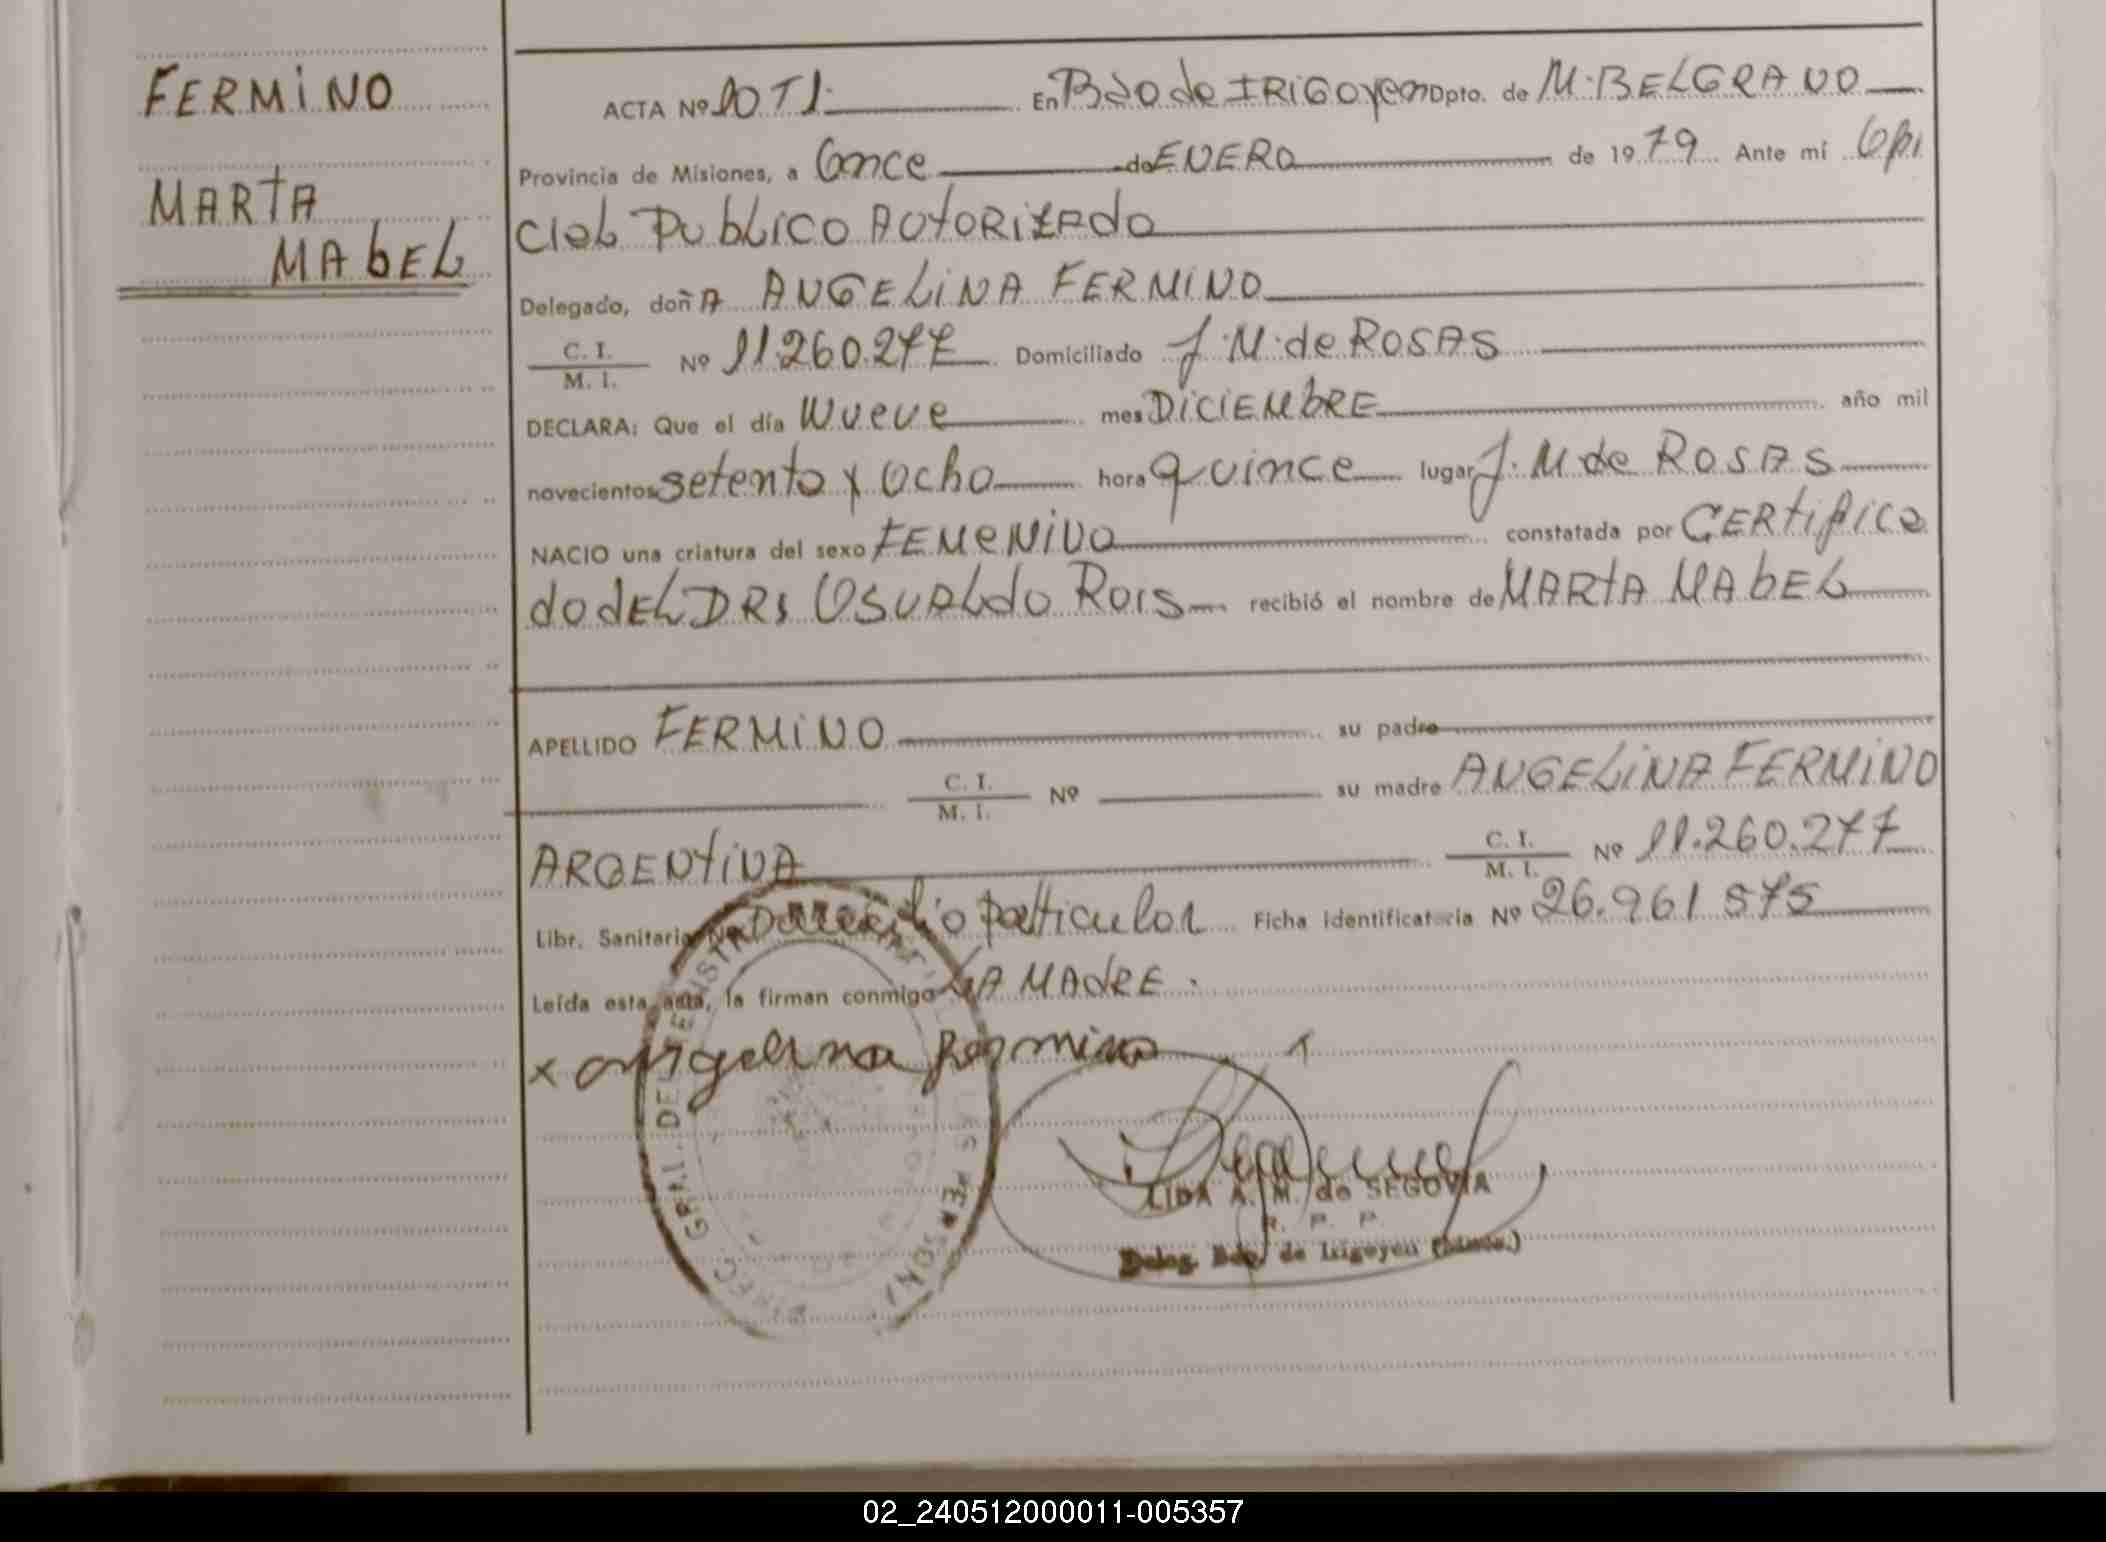 FERMINO
MARTA
MABEL
ACTA Nº 10 T1. En Bdo de IRIGOYEN Dpto. de M. BELGRANO
Provincia de Misiones, a Once de ENERO de 1979 Ante mí Ofi
cial PUbLICO AUTORIZAdo
Delegado, doñA ANGELINA FERMINO
C. I.
M. I.
Nº 11.260.277 Domiciliado J. M. de ROSAS
DECLARA: Que el día Nueve mes DICIEMBRE año mil
novecientos setenta y Ocho hora quince lugar J. M de ROSAS
NACIO una criatura del sexo FEMENINO constatada por CERTIFICA
do dEL DR. OSVALdO ROIS recibió el nombre de MARTA MABEL
APELLIDO FERMINO su padre
C. I.
M. I.
Nº su madre ANGELINA FERMINO
ARGENTINA
C. I.
M. I.
Nº 11.260.277
Libr. Sanitaria Nº Domicilio particular Ficha identificatoria Nº 26.961 575
Leída esta acta, la firman conmigo LA MADRE.
x angelina fermino
LIDA A. M. de SEGOVIA
R. P. P.
Deleg. Bdo. de Irigoyen (Mnes.)
02_240512000011-005357